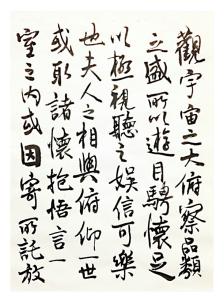 觀宇宙之大俯察品類
之盛所以遊目騁懷足
以極視聽之娛信可樂
也夫人之相與俯仰一世
或取諸懷抱悟言一
室之内或因寄所託放